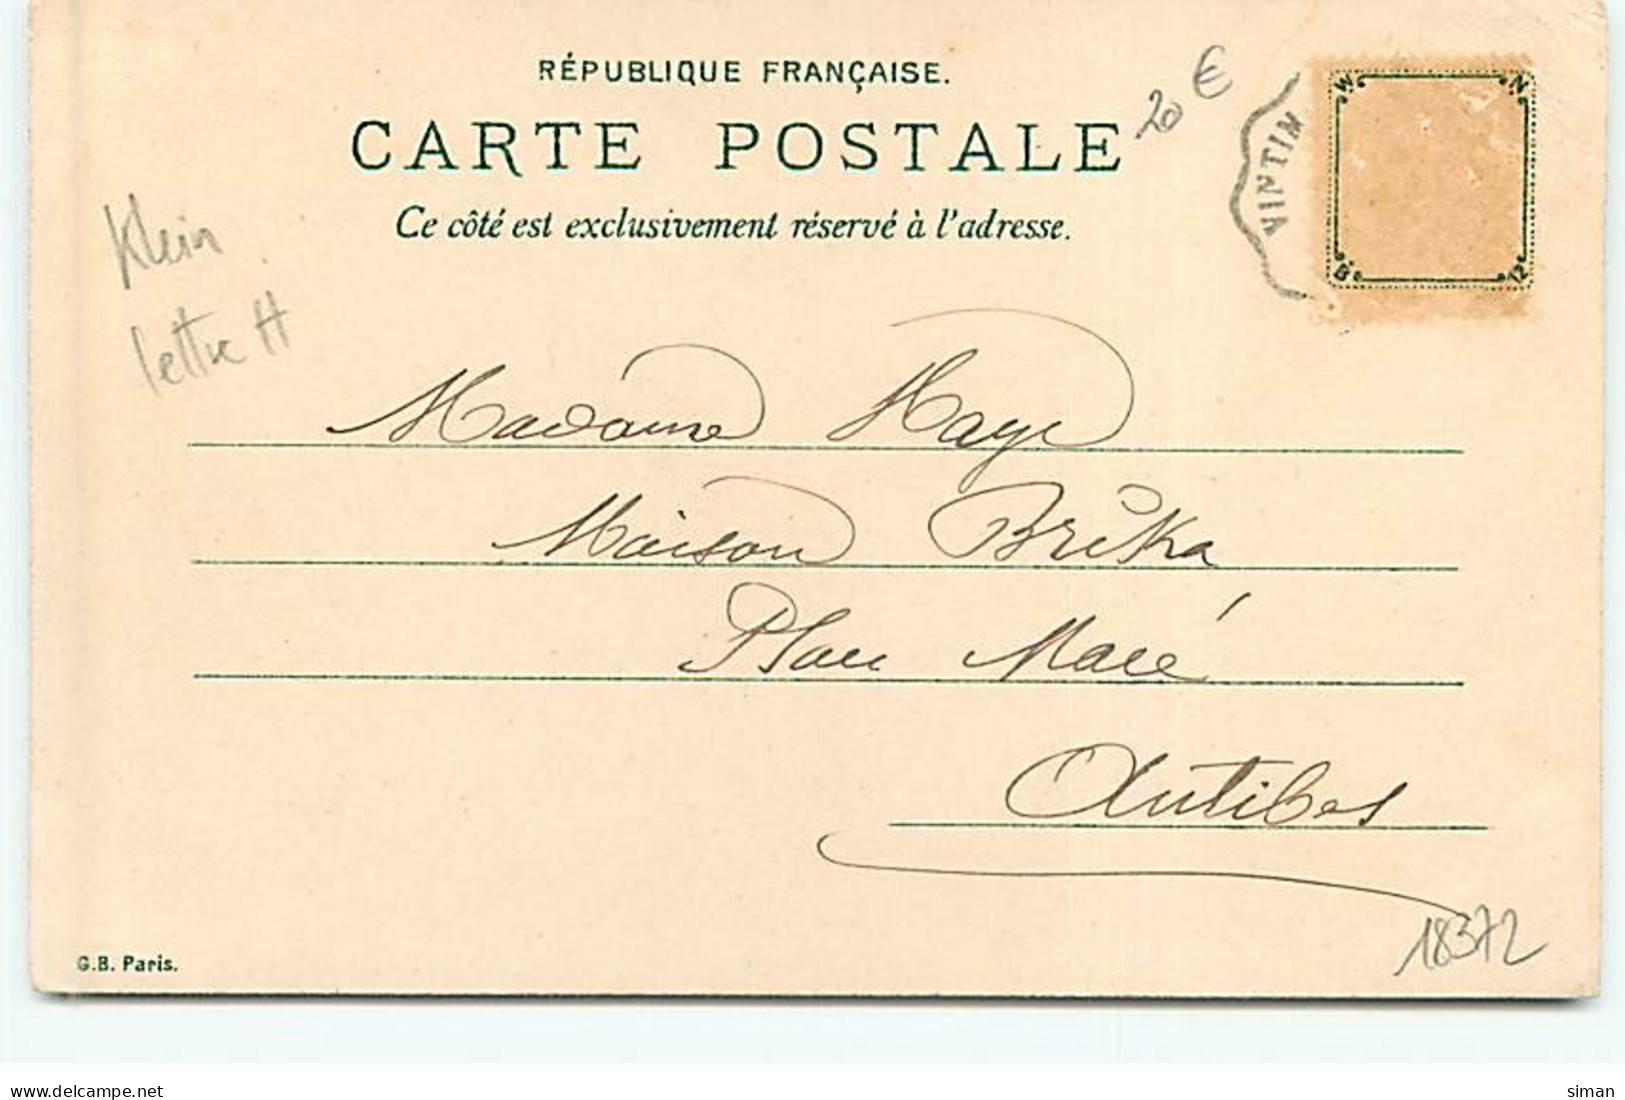 RÉPUBLIQUE FRANÇAISE.
CARTE POSTALE
20 €
VINTIM
W N
B 12
Ce côté est exclusivement réservé à l'adresse.
Klein
lettre H
Madame Haye
Maison Brika
Antibes
G.B. Paris.
18372
delcampe.net
siman